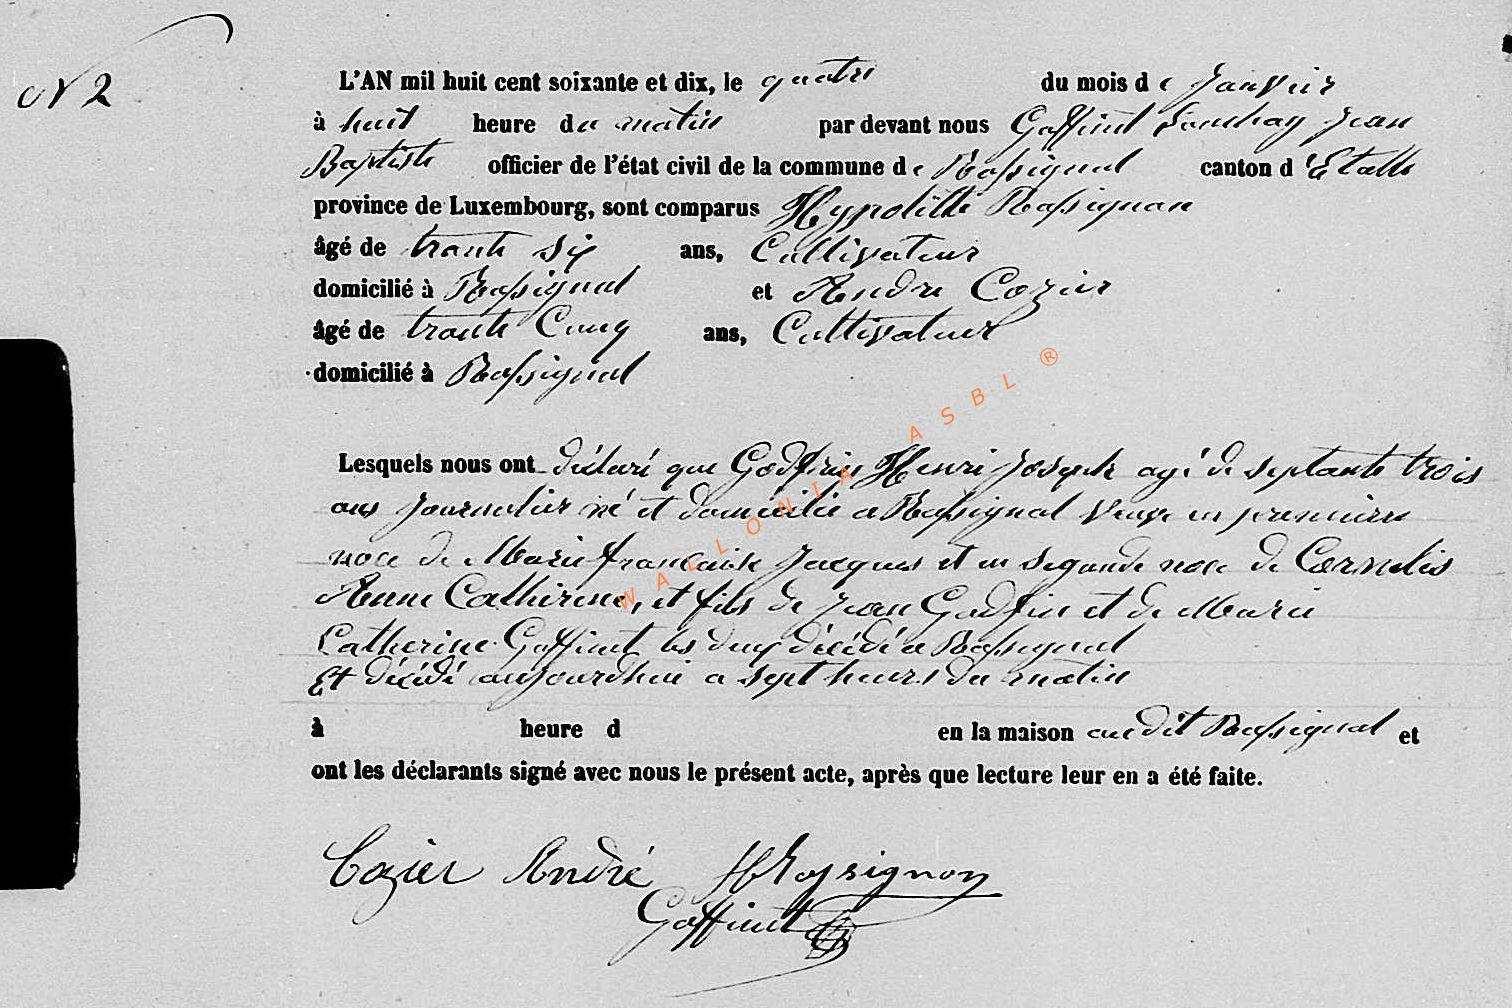 N 2
L'AN mil huit cent soixante et dix, le quatre du mois de Janvier
à huit heure du matin par devant nous Goffinet Jean
Baptiste officier de l'état civil de la commune de Rossignol canton d'Etalle
province de Luxembourg, sont comparus Hypolitte Rossignon
âgé de trante six ans, Cultivateur
domicilié à Rossignol et Andre Cozier
âgé de trante Cinq ans, Cultivateur
domicilié à Rossignol
Lesquels nous ont déclaré que Godfrin Henri Joseph agé de septante trois
ans Journalier né et domicilié a Rossignol Veuf en premiere
noce de Marie francoise Jacques et en segonde noce de Cornelis
Anne Catherine, et fils de Jean Godfrin et de Marie
Catherine Goffinet les deux décédé a Rossignol
Et décédé aujourdhui a sept heures du matin
à heure d en la maison audit Rossignol et
ont les déclarants signé avec nous le présent acte, après que lecture leur en a été faite.
Cozier André H Rossignon
Goffinet
WALLONIA ASBL ®